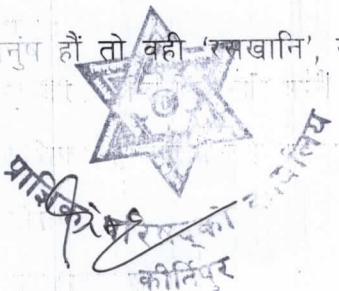 नुंष हौं तो वही ‘रसखानि’,
प्राज्ञिक परिषद्को कार्यालय
कीर्तिपुर